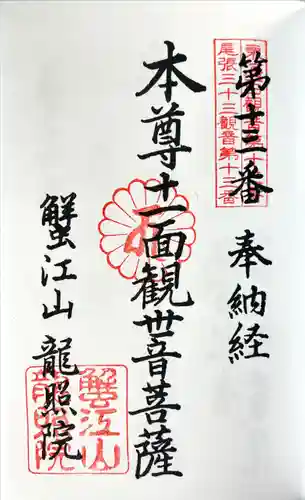 第十三番
奉納経
尾張三十三観音第十三番
本尊十一面觀世音菩薩
蟹江山 龍照院
蟹江山
龍照院